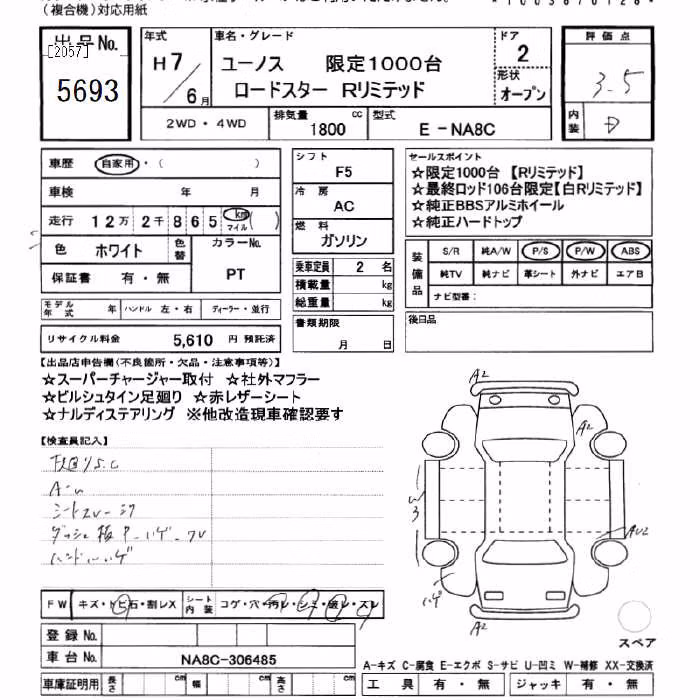 （複合機）対応用紙
出品No.
[2057]
5693
年式
H7/6月
車名・グレード
ユーノス 限定1000台
ロードスター Rリミテッド
ドア
2
形状
オープン
評価点
3.5
内装
D
2WD・4WD
排気量
1800 cc
型式
E-NA8C
車歴 自家用・（ ）
車検 年 月
走行 12万2千865 km マイル ( )
色 ホワイト 色替 カラーNo.
PT
保証書 有・無
モデル年式 年 ハンドル 左・右 ディーラー・並行
リサイクル料金 5,610 円 預託済
シフト
F5
冷房
AC
燃料
ガソリン
乗車定員 2 名
積載量 kg
総重量 kg
書類期限
月 日
セールスポイント
☆限定1000台 【Rリミテッド】
☆最終ロッド106台限定【白Rリミテッド】
☆純正BBSアルミホイール
☆純正ハードトップ
装備品
S/R 純A/W P/S P/W ABS
純TV 純ナビ 革シート 外ナビ エアB
ナビ型番：
後日品
【出品店申告欄（不良箇所・欠品・注意事項等）】
☆スーパーチャージャー取付 ☆社外マフラー
☆ビルシュタイン足廻り ☆赤レザーシート
☆ナルディステアリング ※他改造現車確認要す
【検査員記入】
A-u
シートスレ
ハンドル
FW キズ・トビ石・割レX シート内装 コゲ・穴・汚レ・シミ・破レ・スレ
登録No.
車台No. NA8C-306485
車庫証明用 長さ cm 幅 cm 高さ cm
A2
A2
AU2
A2
スペア
A-キズ C-腐食 E-エクボ S-サビ U-凹ミ W-補修 XX-交換済
工具 有・無 ジャッキ 有・無